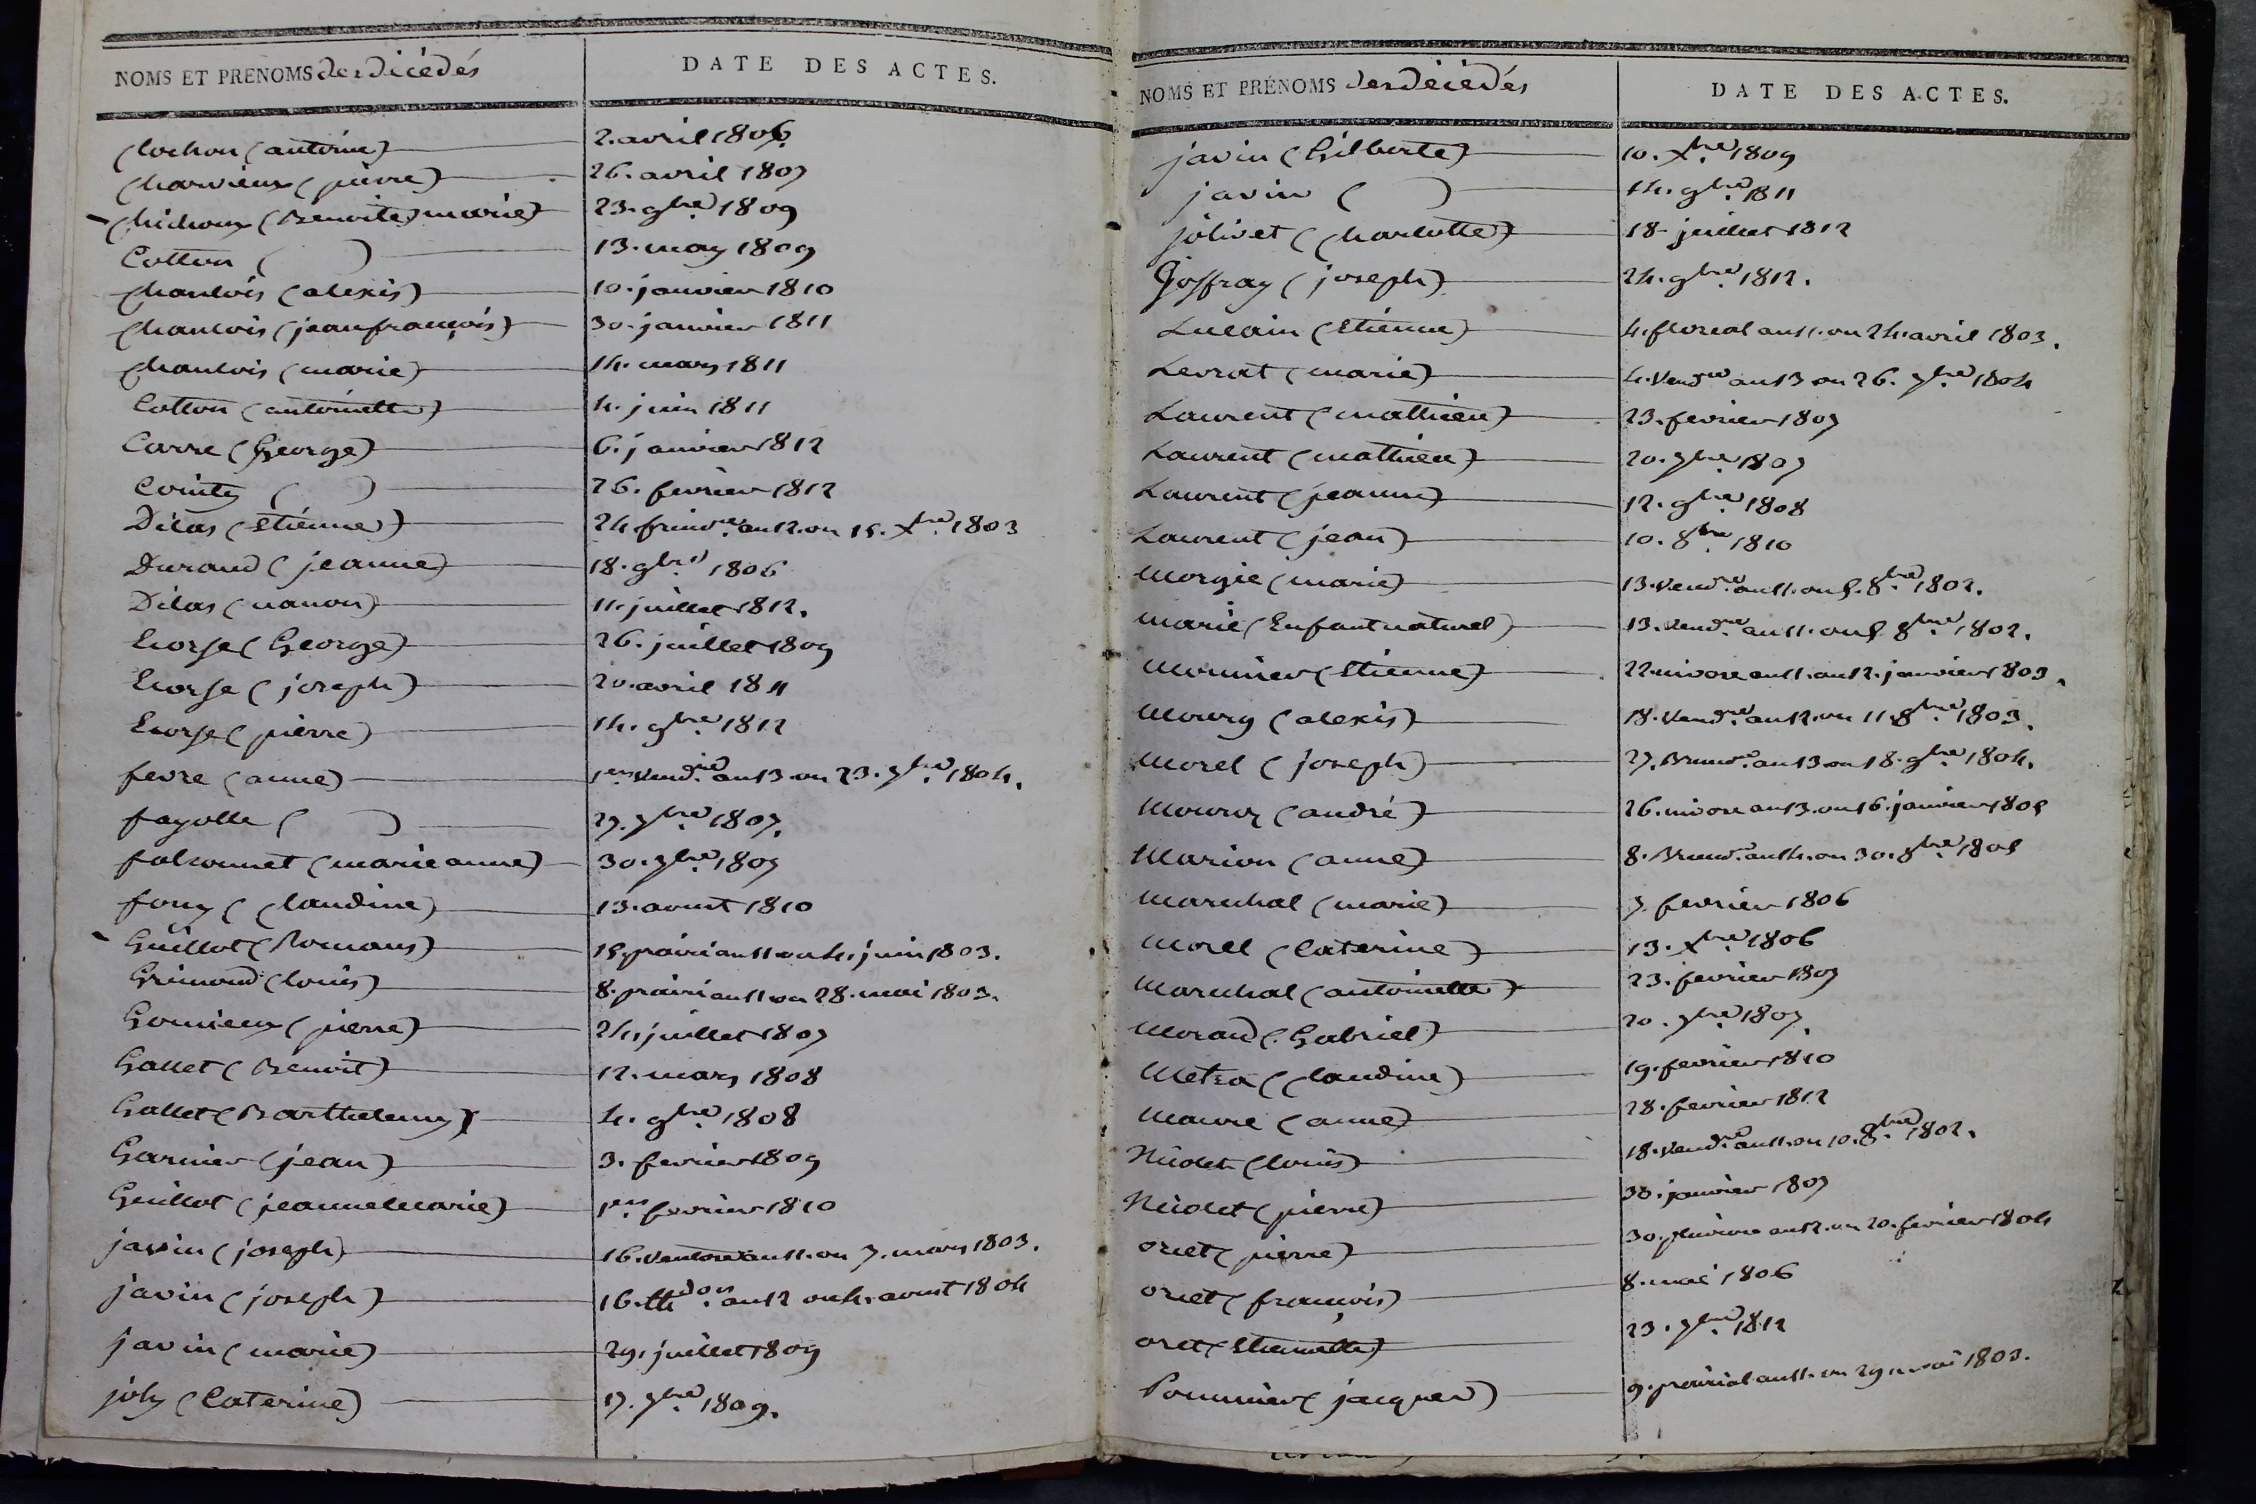 NOMS ET PRENOMS des décédés
DATE DES ACTES.
Cochon (antoine) 2. avril 1806.
Charvieux (pierre) 26. avril 1807
Chichoux (Benoite marie) 23. 9bre. 1809
Cotton ( ) 13. may 1809
Chanlois (alexis) 10. janvier 1810
Chanlois (jean françois) 30. janvier 1811
Chanlois (marie) 14. mars 1811
Cotton (antoinette) 4. juin 1811
Carre (George) 6. janvier 1812
Cointy ( ) 26. fevrier 1812
Dilas (Etiénne) 24. frimre. an 12. ou 15. Xbre. 1803
Durand (jeanne) 18. 9bre. 1806
Dilas (nanon) 11. juillet 1812.
Ecorse (George) 26. juillet 1809
Ecorse (joseph) 20. avril 1811
Ecorse (pierre) 14. 9bre. 1812
fevre (anne) 1er. Vendre. an 13 ou 23. 7bre. 1804.
fayolle ( ) 27. 7bre. 1807.
falconnet (marie anne) 30. 7bre. 1807
fouy (Claudine) 13. aout 1810
Guillot (Romans) 15. prairi an 11 ou 4. juin 1803.
Grimond (louis) 8. prairi an 11 ou 28. mai 1803.
Gonnieux (pierre) 24. juillet 1807
Gallet (Benoit) 12. mars 1808
Gallet (Barthelemy) 4. 9bre. 1808
Garnier (jean) 3. fevrier 1809
Guillot (jeanne Marie) 1er. fevrier 1810
javin (joseph) 16. Ventose an 11. ou 7. mars 1803.
javin (joseph) 16. thdor. an 12 ou 4. aout 1804
javin (marie) 29. juillet 1809
joly (Caterine) 17. 7bre. 1809.
NOMS ET PRÉNOMS des décédés
DATE DES ACTES.
javin (Gilberte) 10. Xbre. 1809
javin ( ) 14. 9bre. 1811
jolivet (Charlotte) 18. juillet 1812
Joffray (joseph) 24. 9bre. 1812.
Lucain (Etiénne) 4. floreal an 11. ou 24. avril 1803.
Levrat (marie) 4. Vendre an 13 ou 26. 7bre. 1804
Laurent (mathieu) 23. fevrier 1807
Laurent (mathieu) 20. 7bre. 1807
Laurent (jeanne) 12. 9bre. 1808
Laurent (jean) 10. 8bre. 1810
Morgie (marie) 13. Vendre. an 11. ou 5. 8bre. 1802.
Marie (Enfant naturel) 13. Vendre. an 11. ou 5. 8bre. 1802.
Monnier (Etienne) 22. nivose an 11. ou 12. janvier 1803.
Moury (alexis) 18. Vendre. an 12. ou 11. 8bre. 1803.
Morel (joseph) 27. Brumre. an 13 ou 18. 9bre. 1804.
Moury (andré) 26. nivose an 13. ou 16. janvier 1805
Marion (anne) 8. Brumre. an 14. ou 30. 8bre. 1805
Marechal (marie) 7. fevrier 1806
Morel (Caterine) 13. Xbre. 1806
Marechal (antoinette) 23. fevrier 1807
Morand (Gabriel) 20. 7bre. 1807.
Metra (Claudine) 19. fevrier 1810
Maure (anne) 28. fevrier 1812
Nicolet (louis) 18. Vendre. an 11. ou 10. 8bre. 1802.
Nicolet (pierre) 30. janvier 1807
oriet (pierre) 30. pluviose an 12. ou 20. fevrier 1804
oriet (françois) 8. mai 1806
oriet (Etiennette) 23. 7bre. 1812
Pommier (jacques) 9. prairial an 11. ou 29. mai 1803.